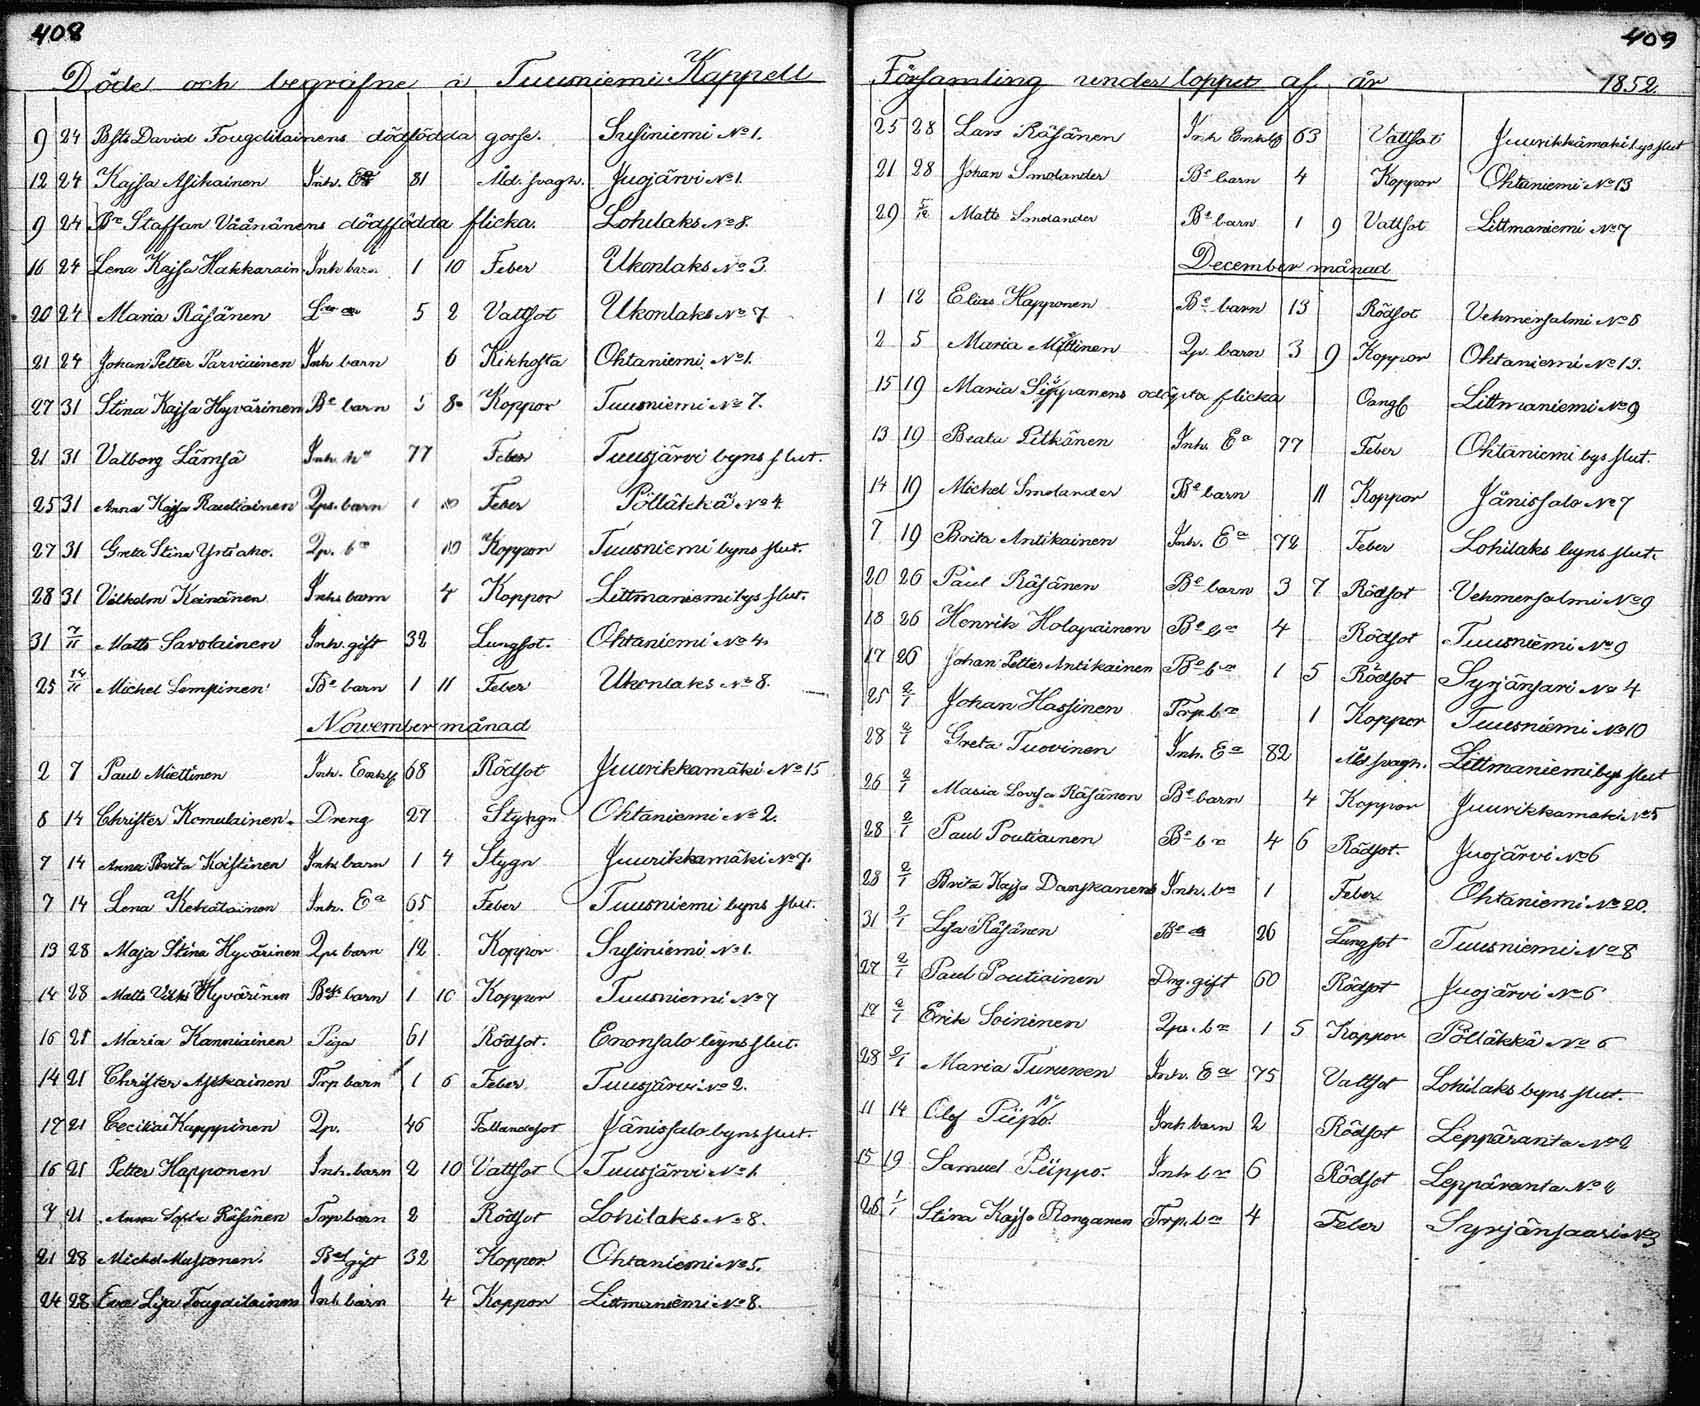 408
Döde och begrafne i Tuusniemi Kappell
9 24 Bfts David Tougdilainens dödfödda gosse. Susiniemi No 1.
12 24 Kajsa Asikainen Inh. Ea 81 Åld. svagh. Juojärvi No 1.
9 24 Bn Staffan Väänänens dödfödda flicka. Lohilaks No 8.
16 24 Lena Kajsa Hakkarain Inh barn 1 10 Feber Ukonlaks No 3.
20 24 Maria Räsänen 5 2 Vattsot Ukonlaks No 7
21 24 Johan Petter Parviainen Inh barn 6 Kikhosta Ohtaniemi No 1.
27 31 Stina Kajsa Hyvärinen Be barn 5 8 Koppor Tuusniemi No 7.
21 31 Valborg Lämsä Inh. 77 Feber Tuusjärvi byns slut.
25 31 Anna Kajsa Rautiainen Qps. barn 1 10 Feber Pöllåkkä No 4.
27 31 Greta Stina Yrtiaho. Qp. bn 10 Koppor Tuusniemi byns slut.
28 31 Vilhelm Keinänen Inhs barn 4 Koppor Littmaniemi bys slut.
31 7/11 Matts Savolainen Inh. gift 32 Lungsot. Ohtaniemi No 4.
25 14/11 Michel Lempinen Be barn 1 11 Feber Ukonlaks No 8.
November månad
2 7 Paul Miettinen Inh. Enklg 68 Rödsot Juurikkamäki No 15
8 14 Christer Komulainen. Dreng 27 Stygn Ohtaniemi No 2.
7 14 Anna Brita Koistinen Inh barn 1 4 Stygn Juurikkamäki No 7.
7 14 Lena Kekäläinen Inh. Ea 65 Feber Tuusniemi byns slut.
13 28 Maja Stina Hyvärinen Qps barn 12 Koppor Susiniemi No 1.
14 28 Matts Vilh. Hyvärinen barn 1 10 Koppor Tuusniemi No 7
16 21 Maria Kanniainen Piga 61 Rödsot. Enonsalo byns slut.
14 21 Christer Asikainen Trp barn 1 6 Feber Tuusjärvi No 2.
17 21 Cecilia Kapppinen Qp. 46 Fallandesot Jänissalo byns slut.
16 21 Petter Happonen Inh. barn 2 10 Vattsot Tuusjärvi No 1.
7 21 Anna Sofia Räsänen Torp barn 2 Rödsot Lohilaks No 8.
21 28 Michel Mustonen. gift 32 Koppor Ohtaniemi No 5.
24 28 Eva Lisa Tougdilainen Inh barn 4 Koppor Littmaniemi No 8.
409
Församling under loppet af år 1852.
25 28 Lars Räsänen Inh Enklg 63 Vattsot Juurikkamäki bys slut
21 28 Johan Smolander Be barn 4 Koppor Ohtaniemi No 13
29 5/12 Matts Smolander Be barn 1 9 Vattsot Littmaniemi No 7
December månad
1 12 Elias Happonen Be barn 13 Rödsot Vehmersalmi No 8
2 5 Maria Miettinen Qp. barn 3 9 Koppor Ohtaniemi No 13.
15 19 Maria odöpta flicka Oangf Littmaniemi No 9
13 19 Beata Pitkänen Inh. Ea 77 Feber Ohtaniemi bys slut.
14 19 Michel Smolander Be barn 11 Koppor Jänissalo No 7
7 19 Brita Antikainen Inh. Ea 72 Feber Lohilaks byns slut.
20 26 Paul Räsänen Be barn 3 7 Rödsot Vehmersalmi No 9
18 26 Henrik Holopainen Be bn 4 Rödsot Tuusniemi No 9
17 26 Johan Petter Antikainen Be bn 1 5 Rödsot Syrjänsari No 4
25 2/1 Johan Hassinen Torp bn 1 Koppor Tuusniemi No 10
28 2/1 Greta Tuovinen Inh. Ea 82 Åld svagh. Littmaniemi bys slut
26 2/1 Maria Lovisa Räsänen Be barn 4 Koppor Juurikkamäki No 5
28 2/1 Paul Poutiainen Be bn 4 6 Rödsot. Juojärvi No 6
28 2/1 Brita Kajsa Danskanens Inh. bn 1 Feber Ohtaniemi No 20.
31 2/1 Lisa Räsänen 26 Lungsot Tuusniemi No 8
27 2/1 Paul Poutiainen Dng. gift 60 Rödsot Juojärvi No 6
17 2/1 Erik Soininen Qps. bn 1 5 Koppor Pöllåkkä No 6
28 2/1 Maria Turunen Inh. Ea 75 Vattsot Lohilaks byns slut.
11 14 Olof Piipo. Inh barn 2 Rödsot Leppäranta No 2
15 19 Samuel Piippo. Inh bn 6 Rödsot Leppäranta No 2
26 1/1 Stina Kajsa Ronganen Torp. bn 4 Feber Syrjänsaari No 3